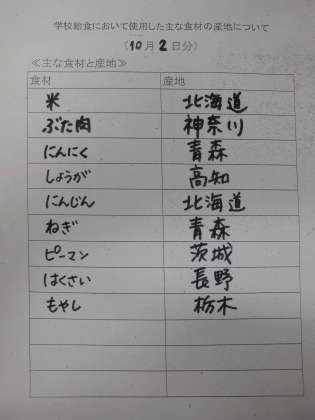 学校給食において使用した主な食材の産地について
（10月2日分）
≪主な食材と産地≫
食材 産地
米 北海道
ぶた肉 神奈川
にんにく 青森
しょうが 高知
にんじん 北海道
ねぎ 青森
ピーマン 茨城
はくさい 長野
もやし 栃木